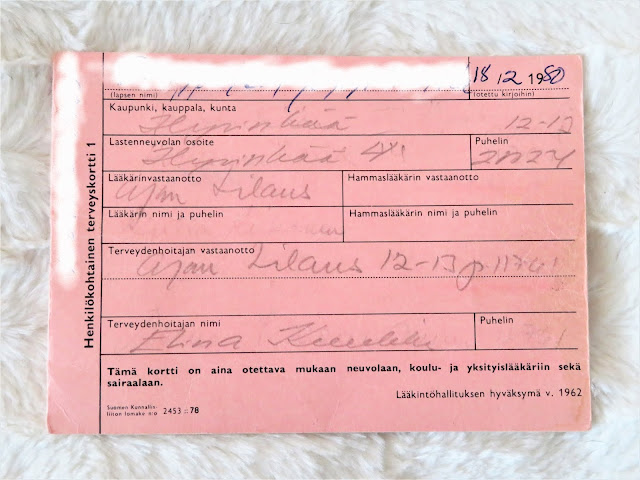 18 12 1980
(lapsen nimi) (otettu kirjoihin)
Kaupunki, kauppala, kunta
Hyvinkää 12-13
Lastenneuvolan osoite Puhelin
Hyvinkää
Lääkärinvastaanotto Hammaslääkärin vastaanotto
Ajan tilaus
Lääkärin nimi ja puhelin Hammaslääkärin nimi ja puhelin
Terveydenhoitajan vastaanotto
Ajan tilaus 12-13 p.
Terveydenhoitajan nimi Puhelin
Elina
Tämä kortti on aina otettava mukaan neuvolaan, koulu- ja yksityislääkäriin sekä
sairaalaan.
Lääkintöhallituksen hyväksymä v. 1962
Suomen Kunnallis-
liiton lomake n:o 2453 78
Henkilökohtainen terveyskortti 1